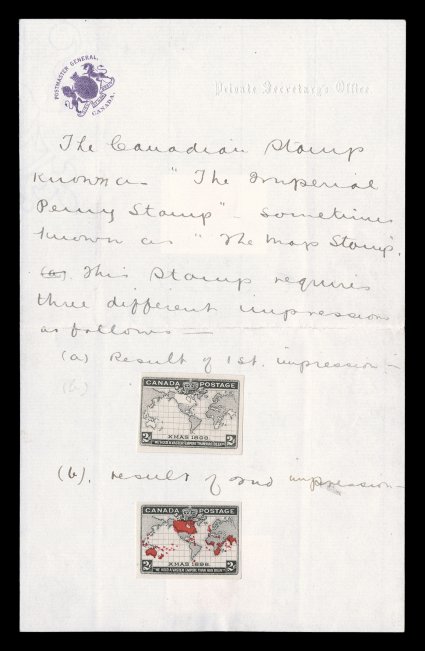 POSTMASTER GENERAL,
CANADA.
Private Secretary's Office.
The Canadian Stamp
Known as "The Imperial
Penny Stamp" - sometimes
known as "The Map Stamp".
(a) This Stamp requires
three different impressions
as follows —
(a) Result of 1st. impression :-
(b)
CANADA POSTAGE
XMAS 1898.
2c 2c
"WE HOLD A VASTER EMPIRE THAN HAS BEEN"
(b). result of 2nd impression -
CANADA POSTAGE
XMAS 1898.
2c 2c
"WE HOLD A VASTER EMPIRE THAN HAS BEEN"